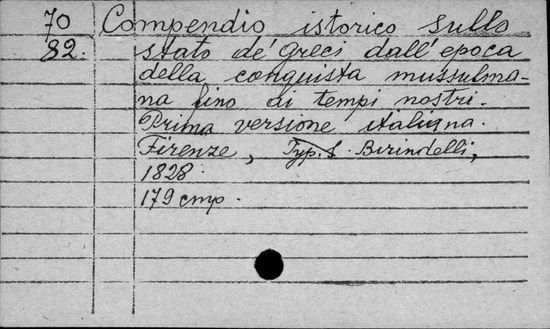 70 Compendio istorico sullo
82. stato de' greci dall' epoca
della conquista mussulma-
na fino di tempi nostri.
Prima versione italiana.
Firenze, Typ. f. Birindelli,
1828.
179 стр.